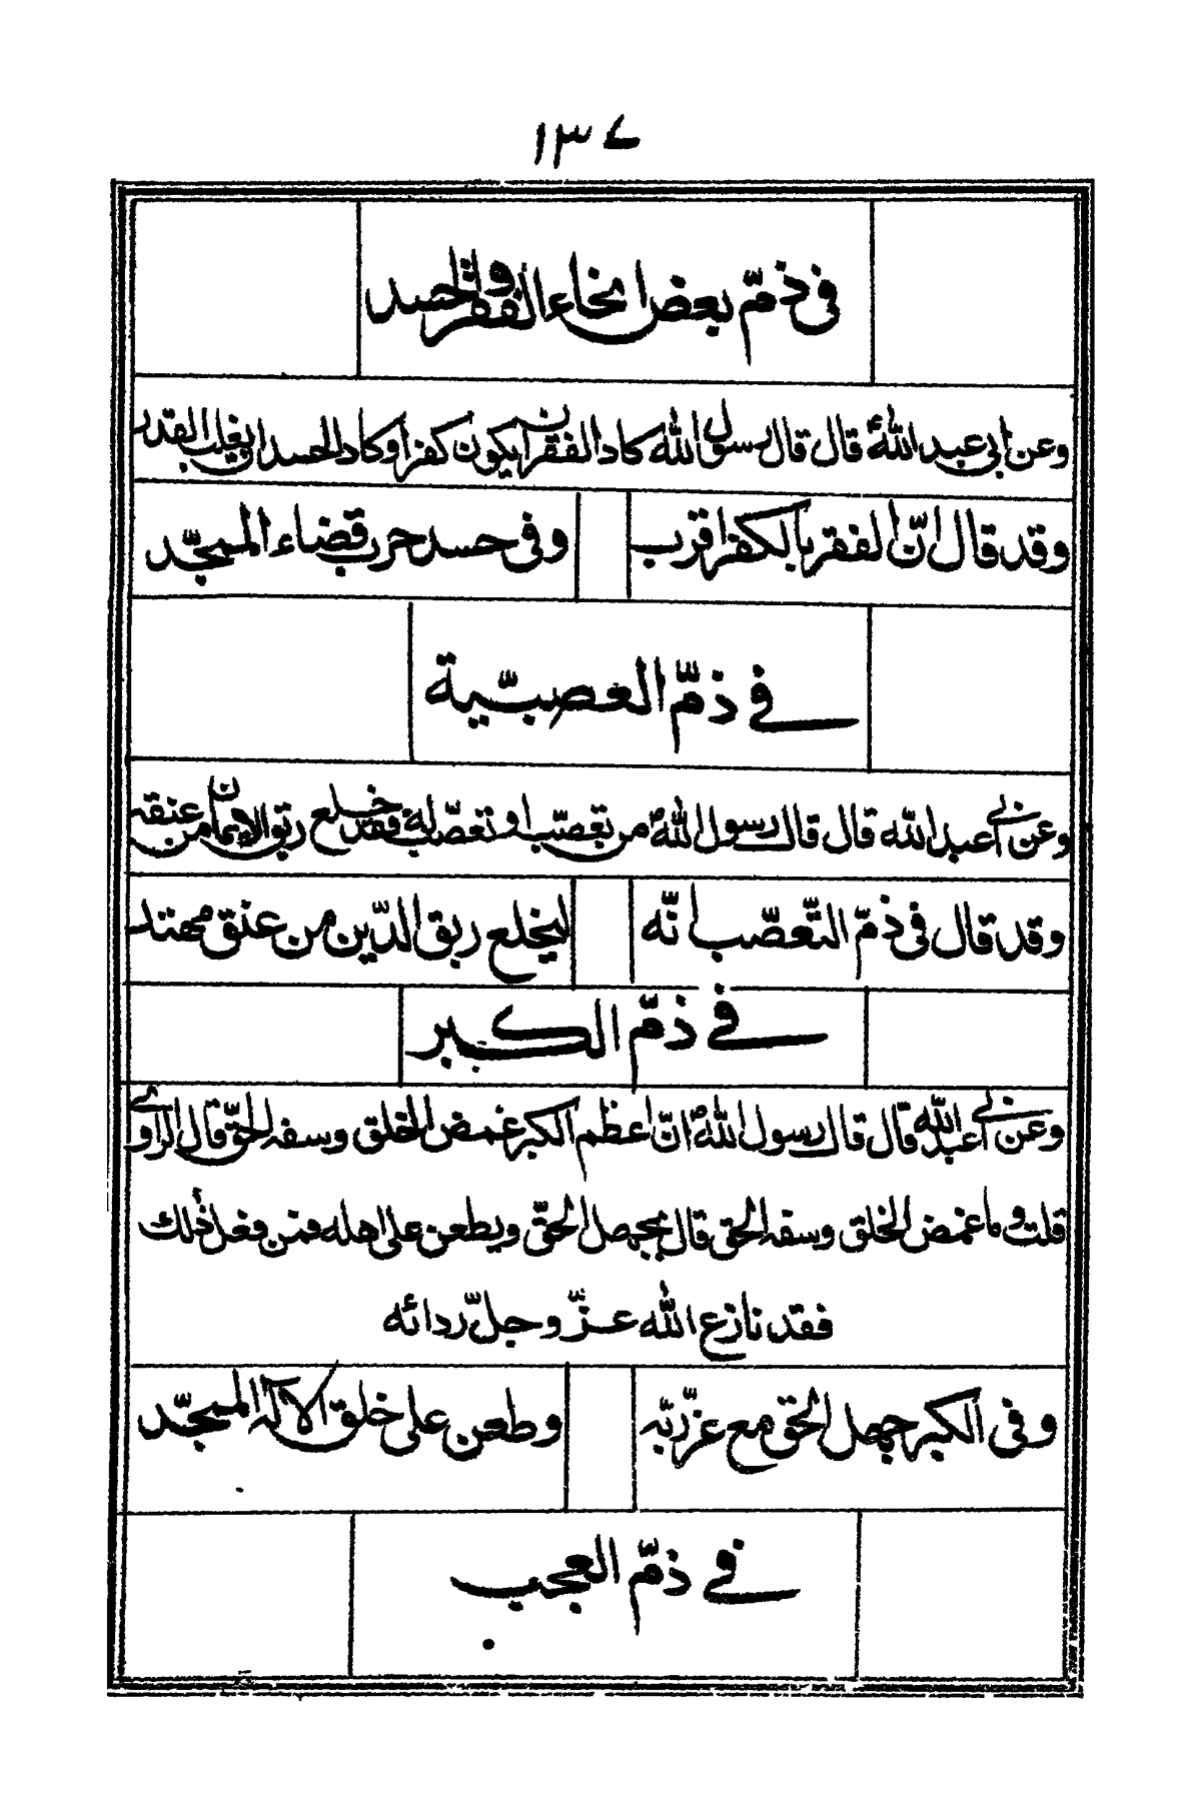 ١٣٤
في ذمّ بعض انحاء الفقر والحسد
وعن ابي عبد الله قال قال رسول الله كاد الفقر ان يكون كفرا وكاد الحسد ان يغلب القدر
وقد قال انّ الفقر بالكفر اقرب وفي حسد حرب قضاء الممجّد
في ذمّ العصبيّة
وعن ابي عبد الله قال قال رسول الله من تعصّب او تعصّب له فقد خلع ربق الايمان من عنقه
وقد قال في ذمّ التّعصّب انّه ليخلع ربق الدّين من عنق مهتد
في ذمّ الكبر
وعن ابي عبد الله قال قال رسول الله انّ اعظم الكبر غمض الخلق وسفه الحقّ قال الراوي
قلت وما غمض الخلق وسفه الحق قال يجهل الحقّ ويطعن على اهله فمن فعل ذلك
فقد نازع الله عزّ وجلّ ردائه
وفي الكبر جهل الحق مع عزّ ربّه وطعن على خلق الاله الممجّد
في ذمّ العجب